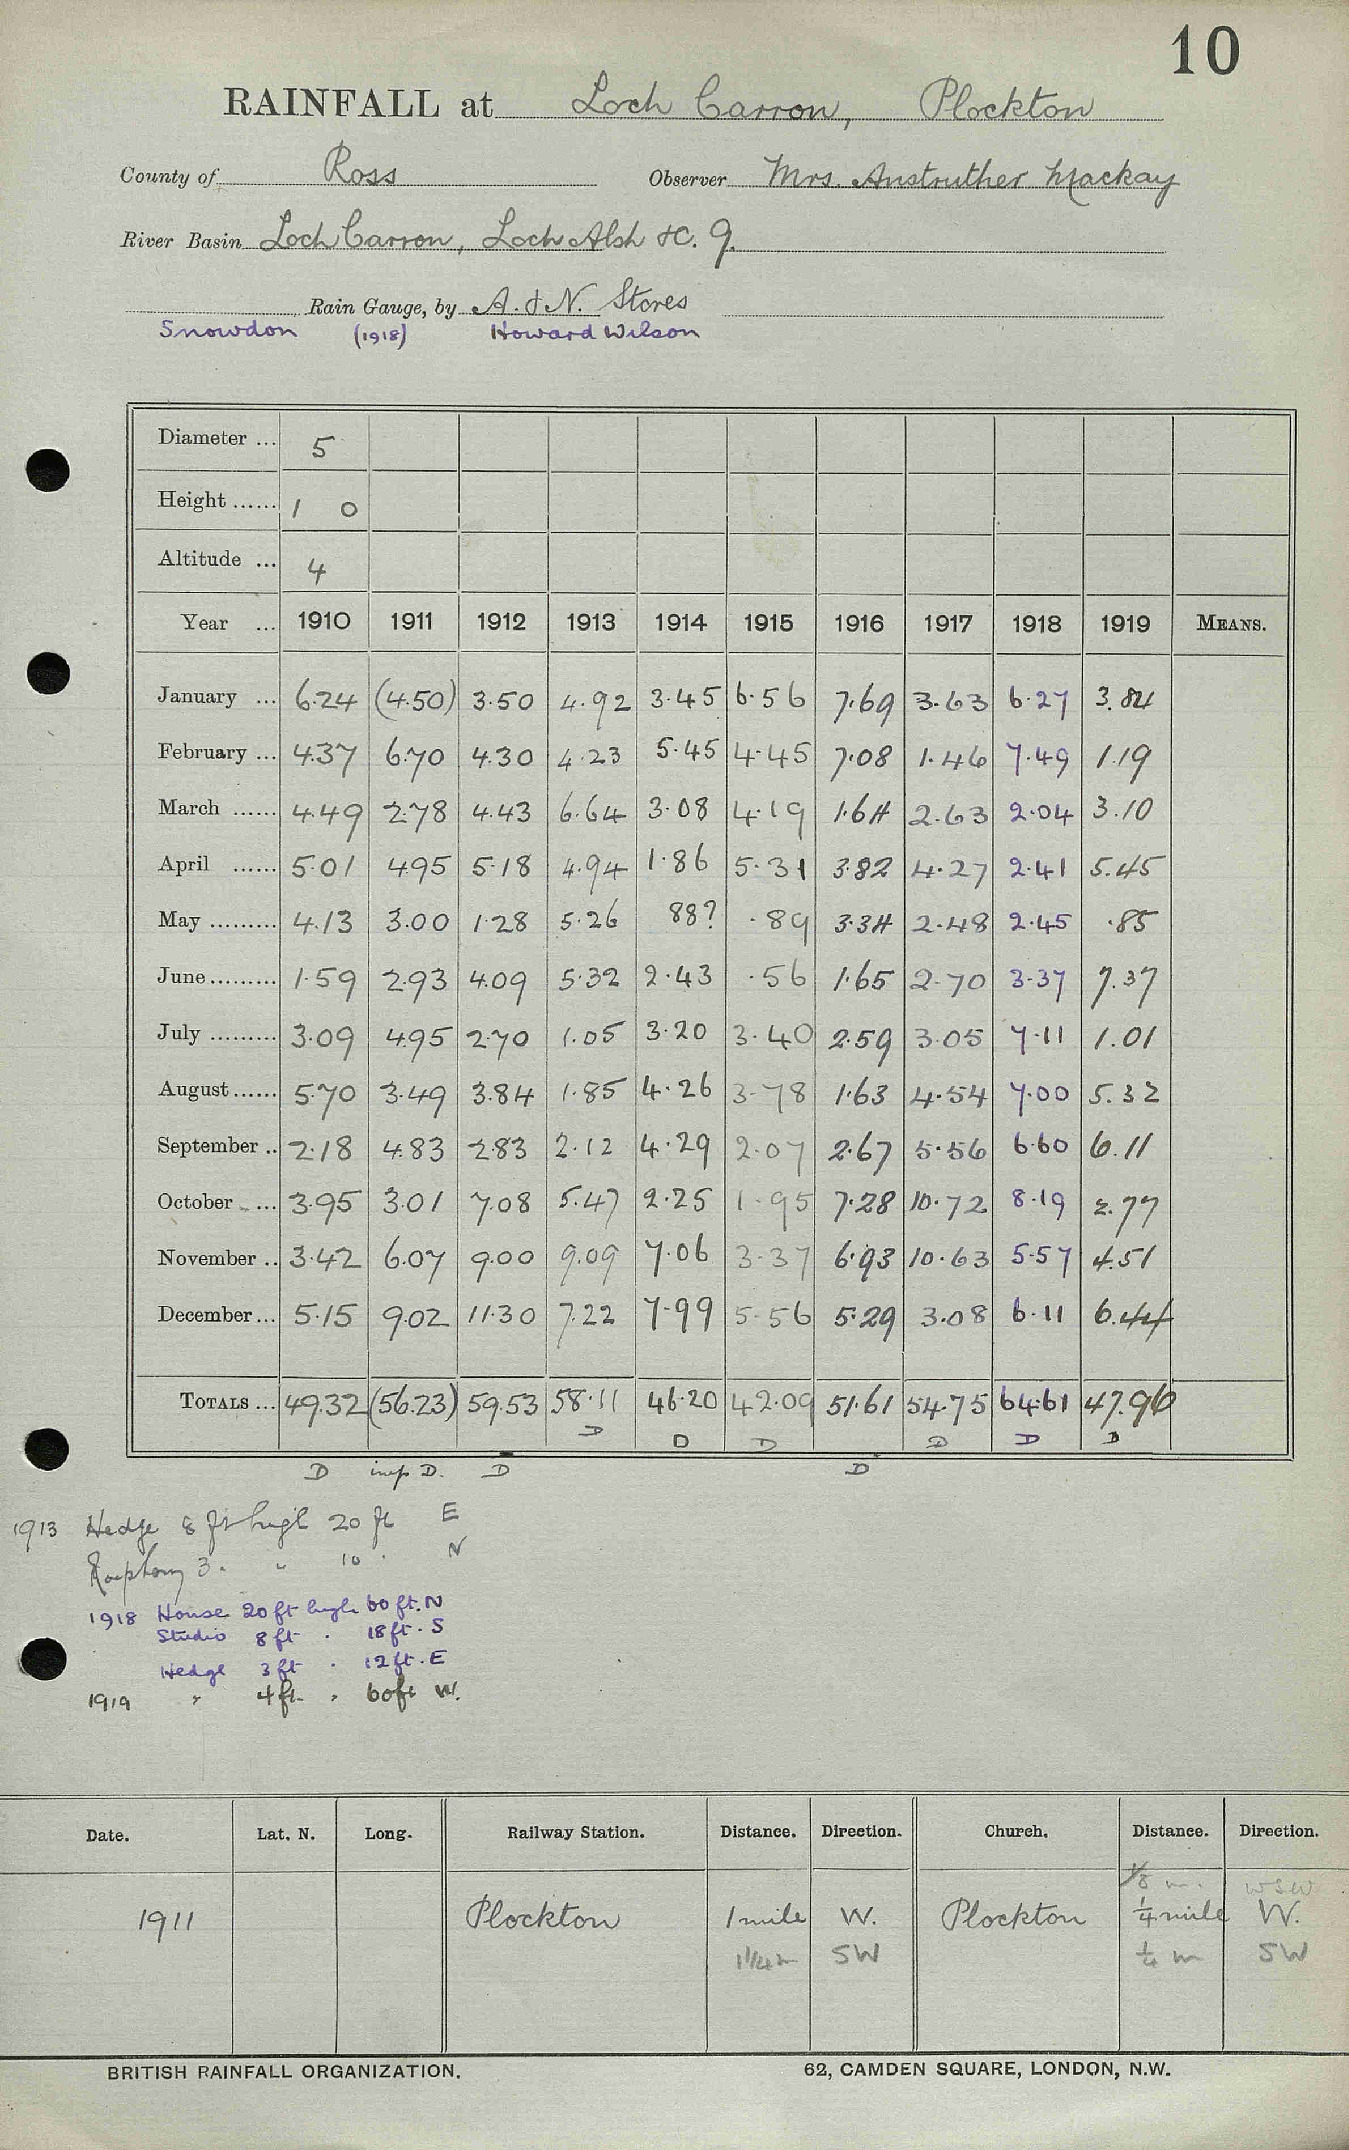 10
RAINFALL at Loch Carron, Plockton
County of Ross Observer Mrs. Anstruther Mackay
River Basin Loch Carron, Loch Alsh &c. 9.
Rain Gauge, by A. & N. Stores
Snowdon (1918) Howard Wilson
Diameter ... 5
Height ...... 1 0
Altitude ... 4
Year ... 1910 1911 1912 1913 1914 1915 1916 1917 1918 1919 MEANS.
January ... 6.24 (4.50) 3.50 4.92 3.45 6.56 7.69 3.63 6.27 3.84
February ... 4.37 6.70 4.30 4.23 5.45 4.45 7.08 1.46 7.49 1.19
March ...... 4.49 2.78 4.43 6.64 3.08 4.19 1.64 2.63 2.04 3.10
April ...... 5.01 4.95 5.18 4.94 1.86 5.31 3.82 4.27 2.41 5.45
May ......... 4.13 3.00 1.28 5.26 88? .89 3.34 2.48 2.45 .85
June ......... 1.59 2.93 4.09 5.32 2.43 .56 1.65 2.70 3.37 7.37
July ......... 3.09 4.95 2.70 1.05 3.20 3.40 2.59 3.05 7.11 1.01
August ...... 5.70 3.49 3.84 1.85 4.26 3.78 1.63 4.54 7.00 5.32
September .. 2.18 4.83 2.83 2.12 4.29 2.07 2.67 5.56 6.60 6.11
October ... 3.95 3.01 7.08 5.47 2.25 1.95 7.28 10.72 8.19 2.77
November .. 3.42 6.07 9.00 9.09 7.06 3.37 6.93 10.63 5.57 4.51
December ... 5.15 9.02 11.30 7.22 7.99 5.56 5.29 3.08 6.11 6.44
TOTALS ... 49.32 (56.23) 59.53 58.11 46.20 42.09 51.61 54.75 64.61 47.96
D D D D D D
D imp D. D D
1913 Hedge 8 ft high 20 ft E
3 " " 10 " N
1918 House 20 ft high 60 ft. N
Studio 8 ft " 18 ft. S
Hedge 3 ft " 12 ft. E
1919 " 4 ft. " 60 ft W.
Date. Lat. N. Long. Railway Station. Distance. Direction. Church. Distance. Direction.
1/8 m. WSW
1911 Plockton 1 mile W. Plockton 1/4 mile W.
1 1/4 m SW 1/4 m SW
BRITISH RAINFALL ORGANIZATION. 62, CAMDEN SQUARE, LONDON, N.W.